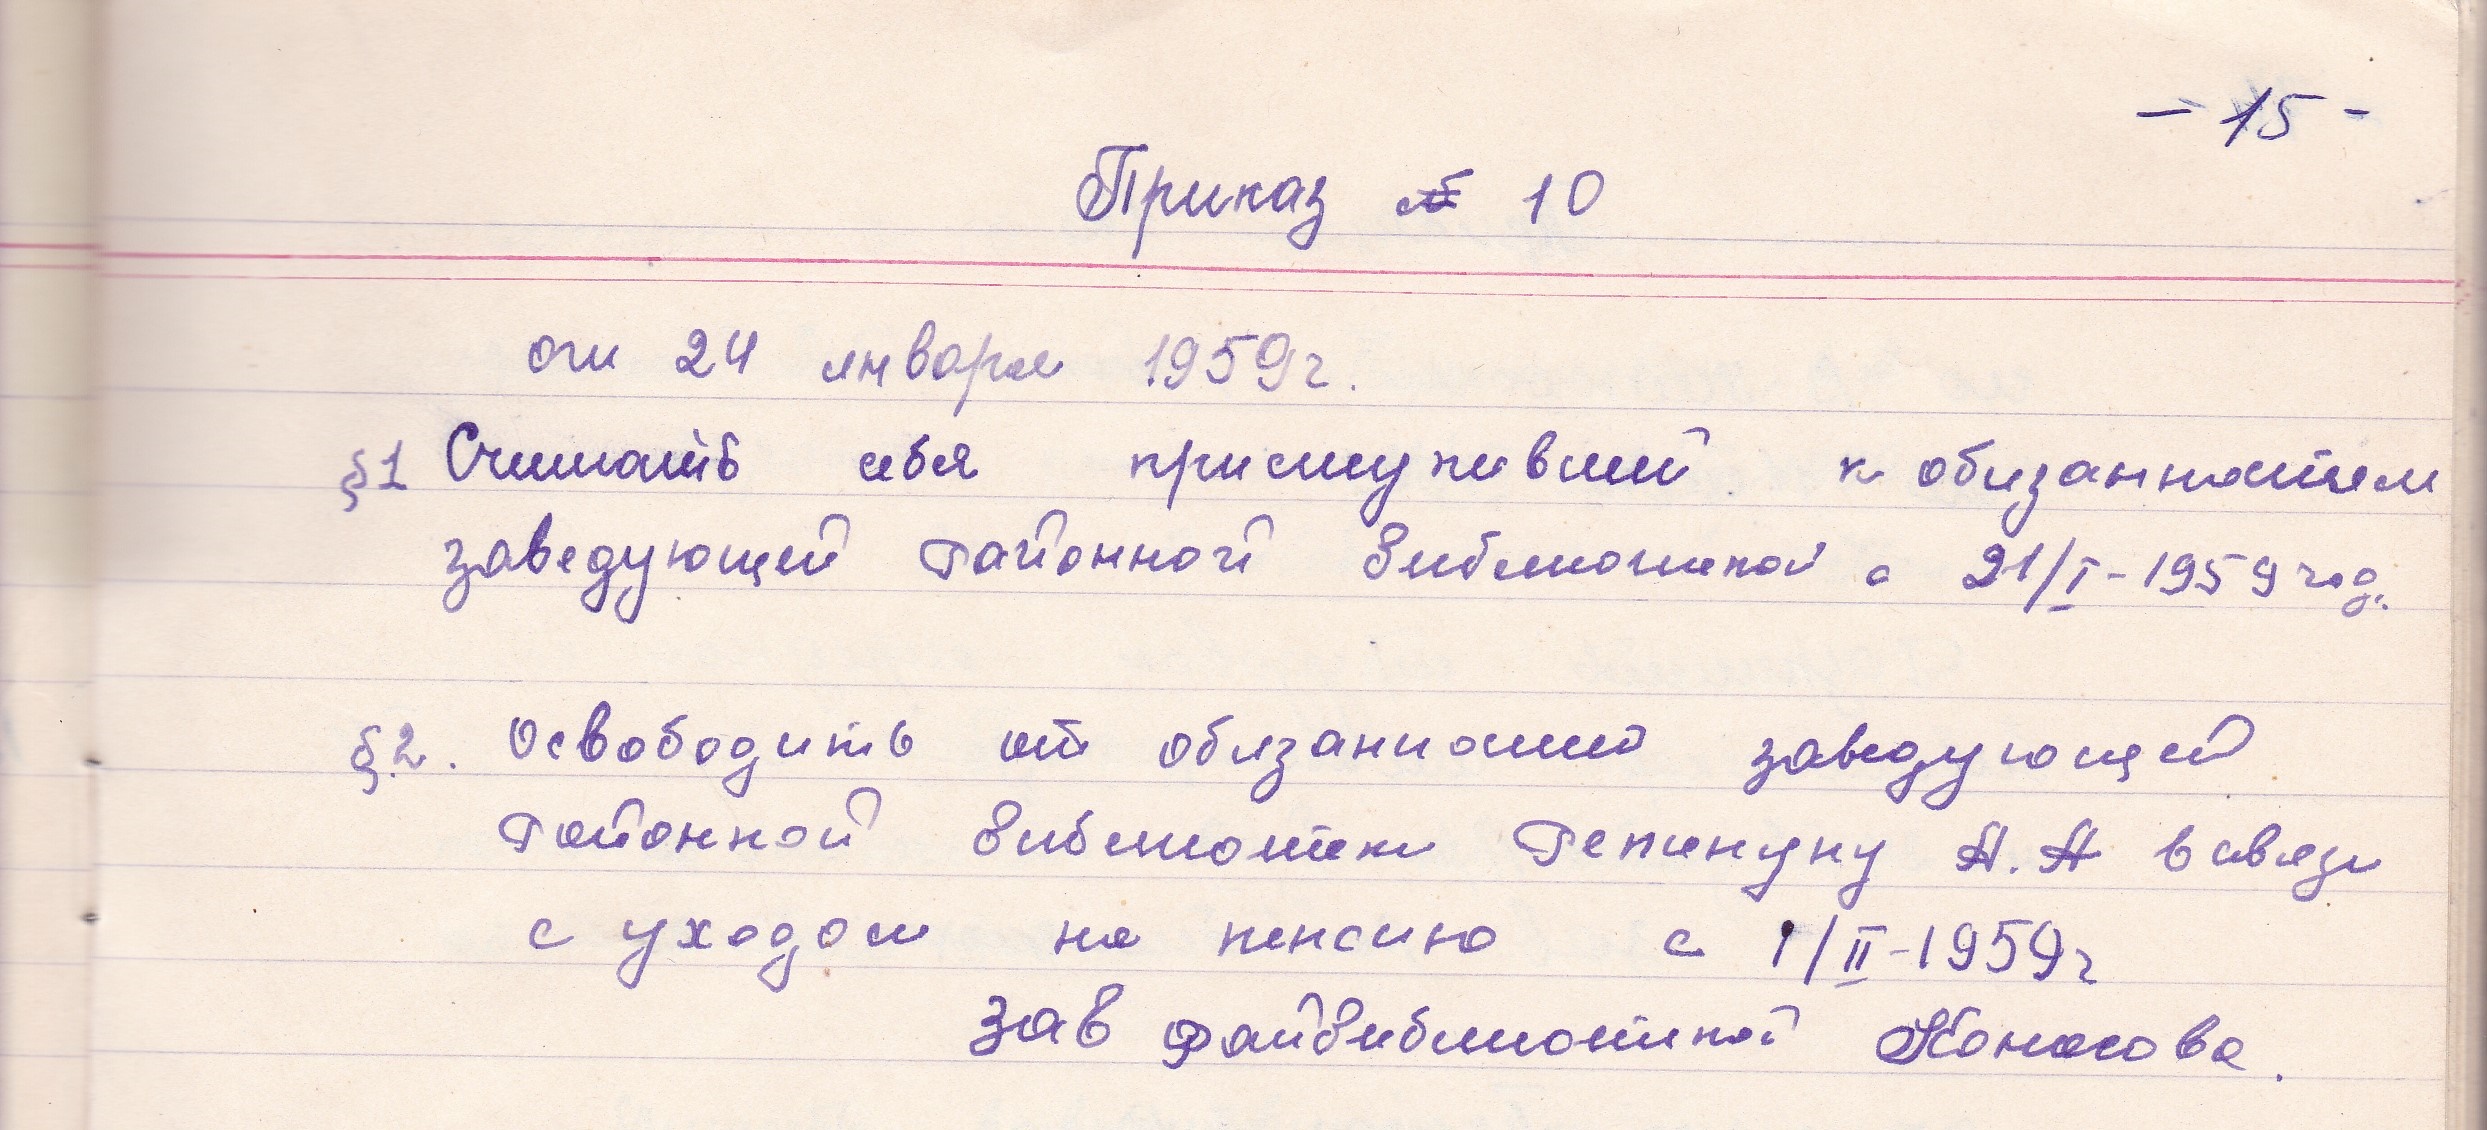 - 15 -
Приказ № 10
от 24 января 1959г.
§1 Считать себя приступившей к обязанностям
заведующей районной библиотекой с 21/I-1959 год.
§2. Освободить от обязанностей заведующей
районной библиотеки А.А в связи
с уходом на пенсию с 1/II-1959г
Зав райбиблиотекой Конасова.